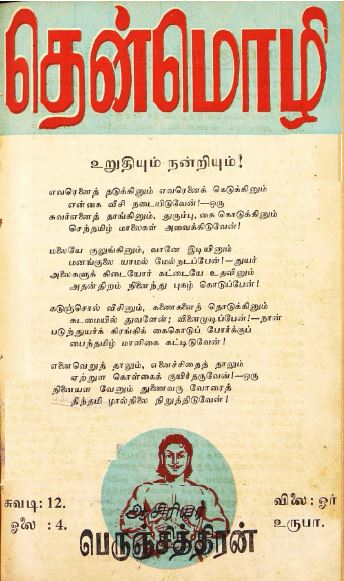 தென்மொழி
உறுதியும் நன்றியும்!
எவரெனைத் தடுக்கினும் எவரெனைக் கெடுக்கினும்
என்கை வீசி நடையிடுவேன்!—ஒரு
சுவர்எனைத் தாங்கினும், துரும்பு, கை கொடுக்கினும்
செந்தமிழ் மாலைகள் அவைக்கிடுவேன்!
மலையே குலுங்கினும், வானே இடியினும்
மனங்குலை யாமல் மேல்நடப்பேன்!—துயர்
அலைகளுக் கிடையோர் கட்டையே உதவினும்
அதன்திறம் நினைந்து புகழ் கொடுப்பேன்!
கடுஞ்சொல் வீசினும், கணைகளைத் தொடுக்கினும்
கடமையில் துவளேன்; வினைமுடிப்பேன்!—நான்
படுந்துயர்க் கிரங்கிக் கைகொடுப் போர்க்குப்
பைந்தமிழ் மாளிகை கட்டிடுவேன்!
எனைவெறுத் தாலும், எனைச்சிதைத் தாலும்
ஏற்றுள கொள்கைக் குயிர்தருவேன்!—ஒரு
நினையள வேனும் துணைவரு வோரைத்
தீந்தமி ழால்நிலை நிறுத்திடுவேன்!
சுவடி: 12.
ஓலை : 4.
ஆசிரியர்
பெருஞ்சித்திரன்
விலை: ஓர்
உருபா.